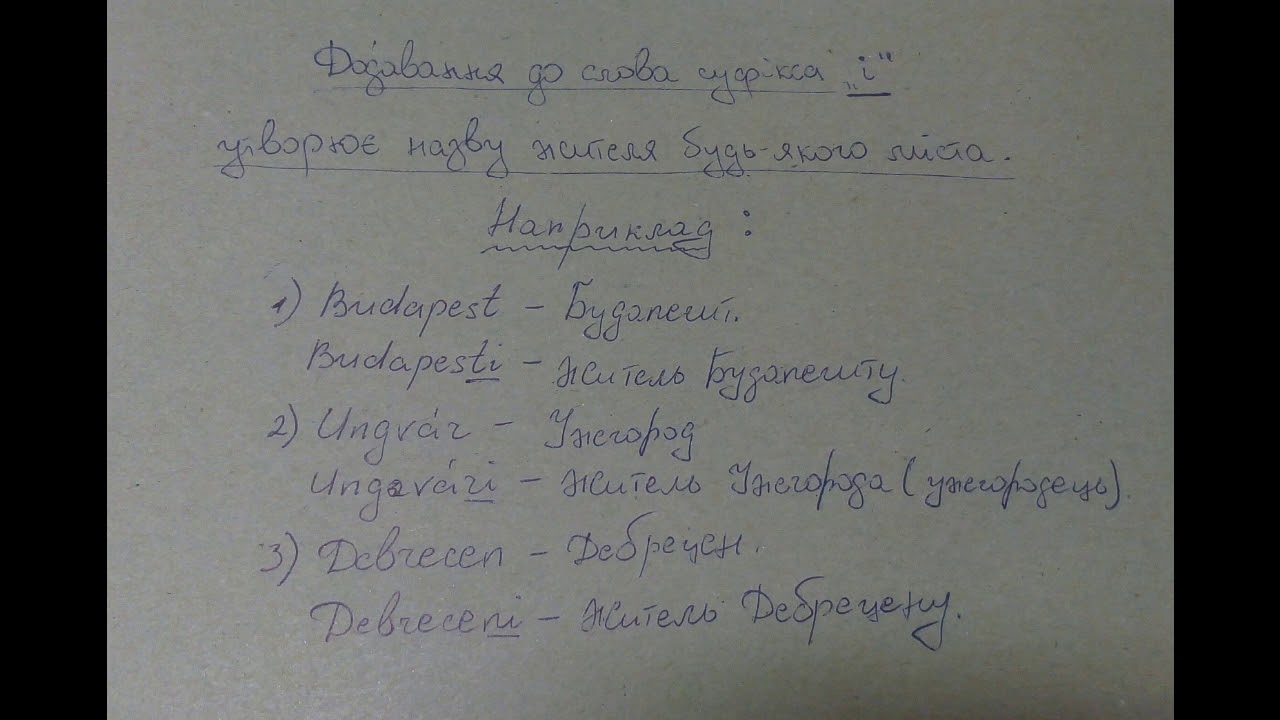 Додавання до слова суфікса „і"
утворює назву жителя будь-якого міста.
Наприклад :
1) Budapest – Будапешт.
Budapesti – житель Будапешту.
2) Ungvár – Ужгород
Ungvári – житель Ужгорода (ужгородець).
3) Debrecen – Дебрецен.
Debreceni – житель Дебрецену.